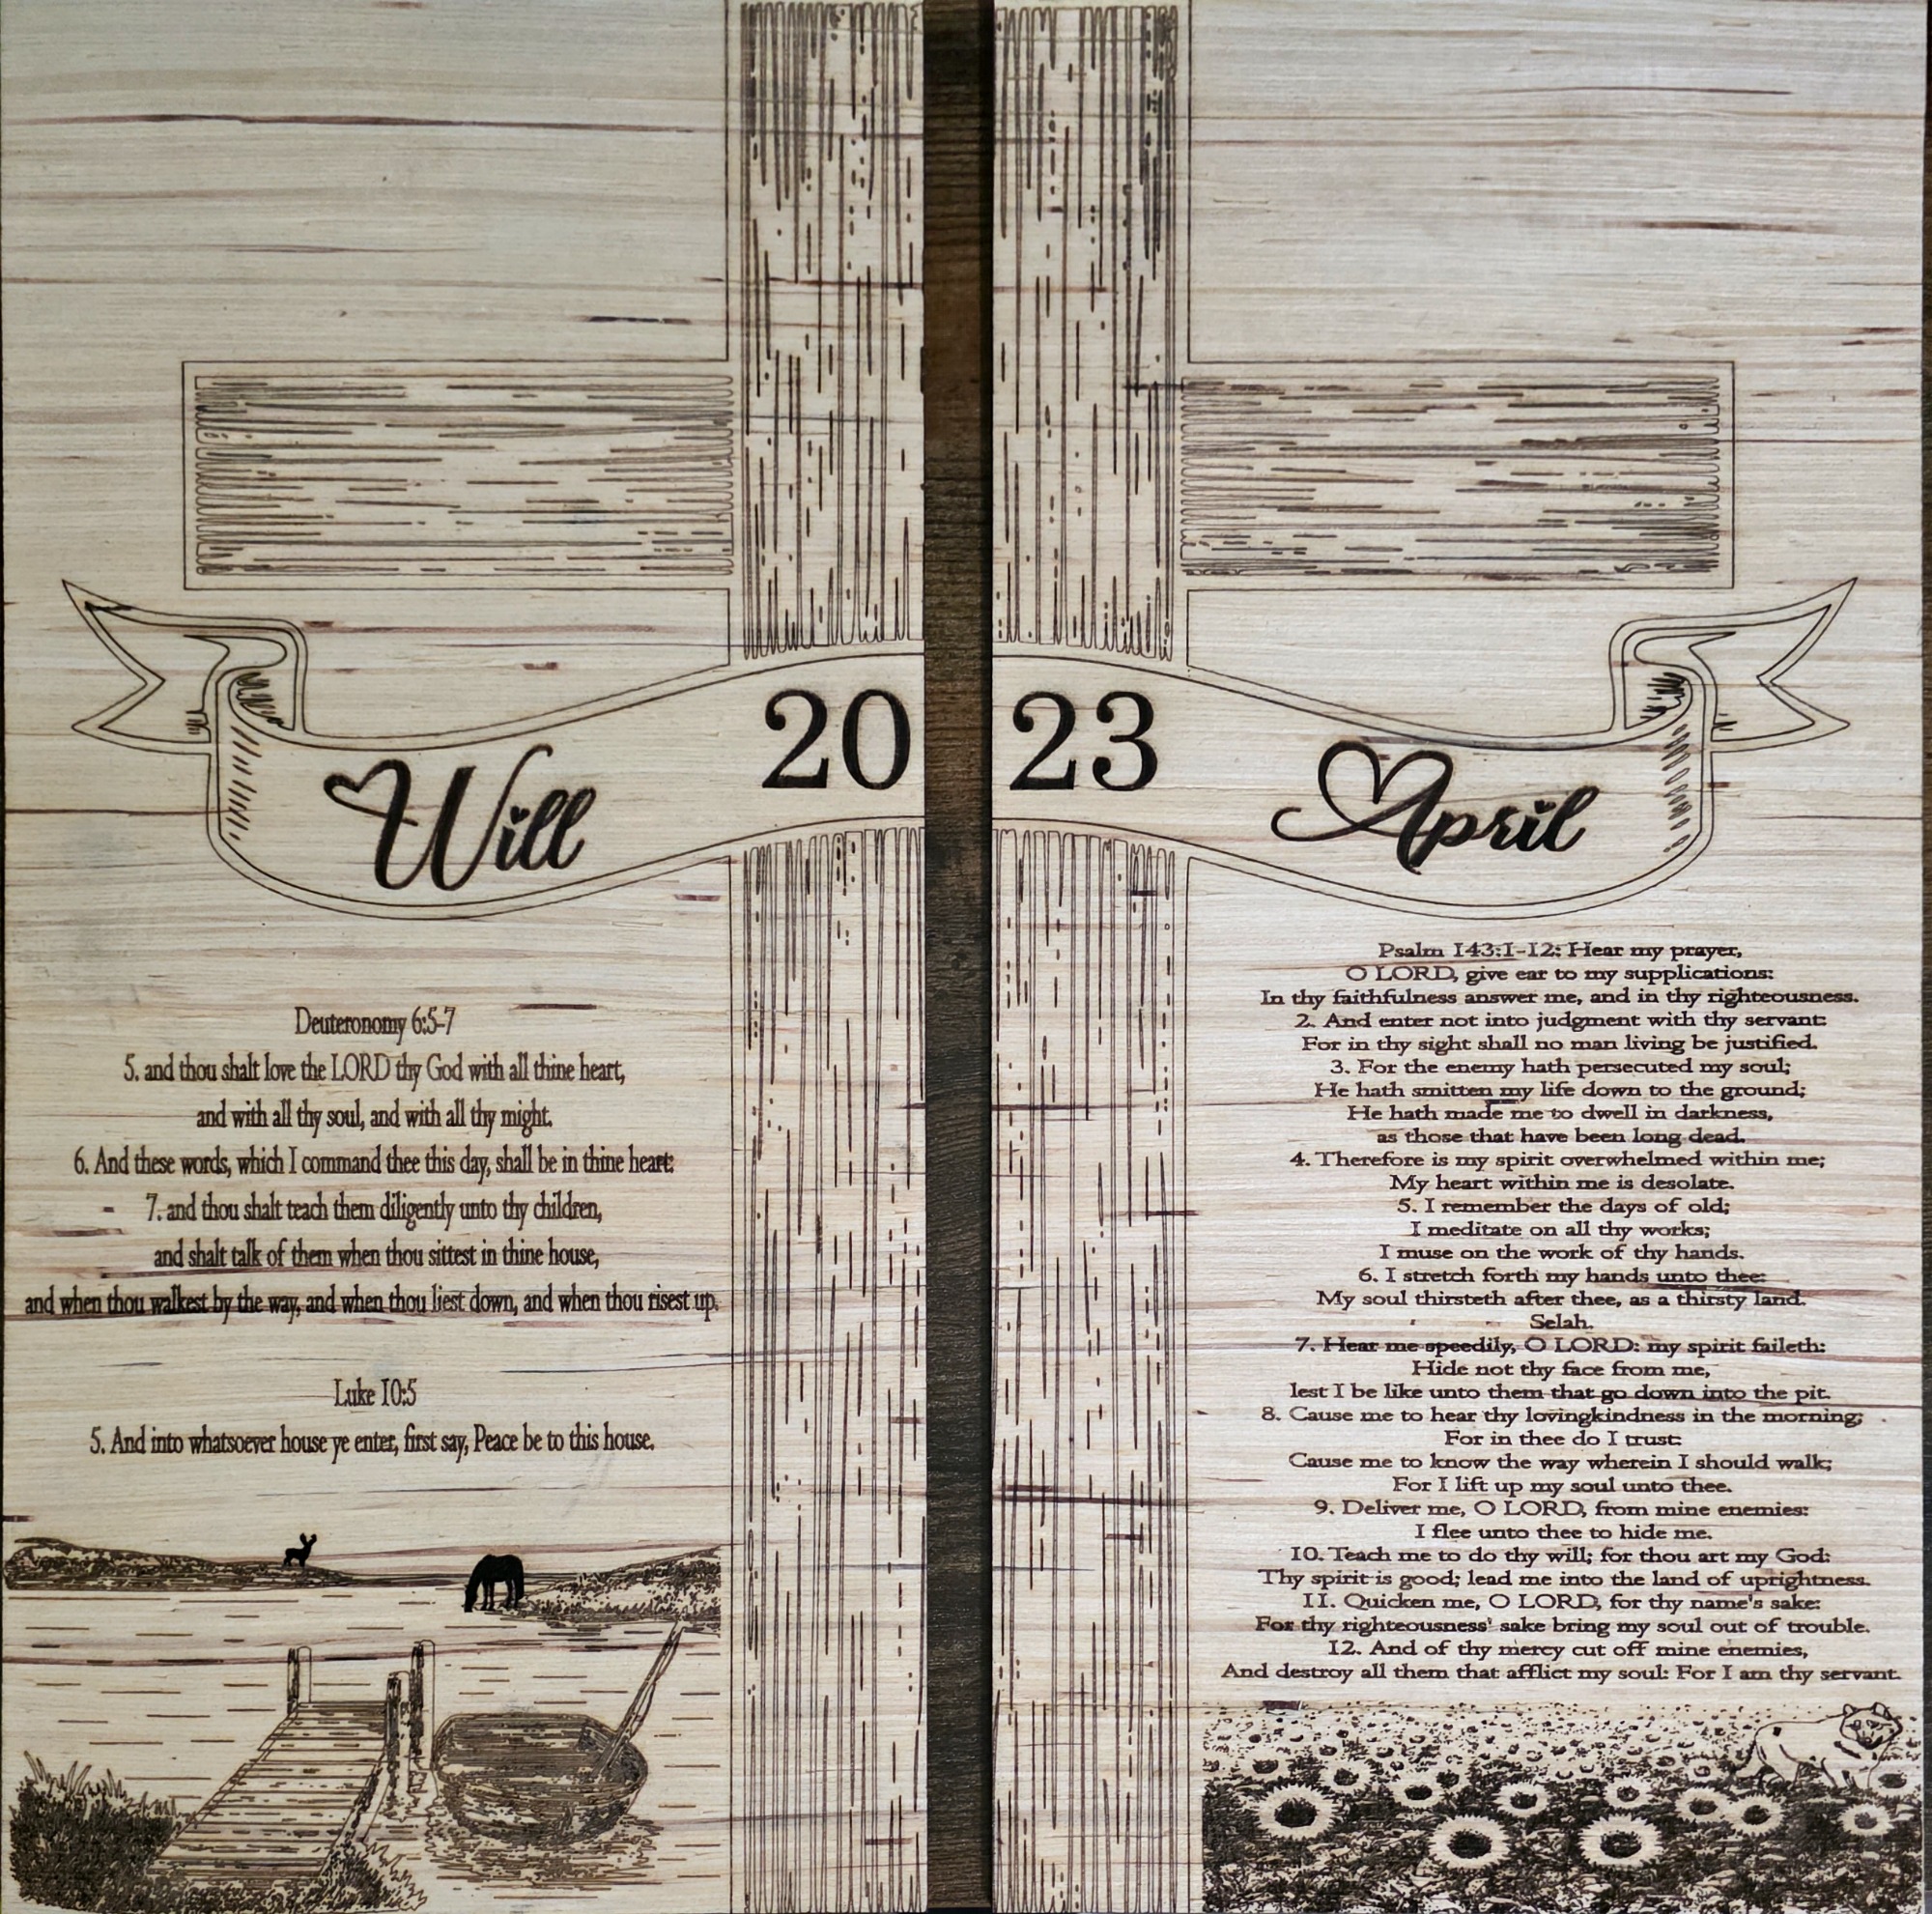 20 23
Will
April
Deuteronomy 6:5-7
5. and thou shalt love the LORD thy God with all thine heart,
and with all thy soul, and with all thy might.
6. And these words, which I command thee this day, shall be in thine heart:
7. and thou shalt teach them diligently unto thy children,
and shalt talk of them when thou sittest in thine house,
and when thou walkest by the way, and when thou liest down, and when thou risest up.
Luke 10:5
5. And into whatsoever house ye enter, first say, Peace be to this house.
Psalm 143:1-12: Hear my prayer,
O LORD, give ear to my supplications:
In thy faithfulness answer me, and in thy righteousness.
2. And enter not into judgment with thy servant:
For in thy sight shall no man living be justified.
3. For the enemy hath persecuted my soul;
He hath smitten my life down to the ground;
He hath made me to dwell in darkness,
as those that have been long dead.
4. Therefore is my spirit overwhelmed within me;
My heart within me is desolate.
5. I remember the days of old;
I meditate on all thy works;
I muse on the work of thy hands.
6. I stretch forth my hands unto thee:
My soul thirsteth after thee, as a thirsty land.
Selah.
7. Hear me speedily, O LORD: my spirit faileth:
Hide not thy face from me,
lest I be like unto them that go down into the pit.
8. Cause me to hear thy lovingkindness in the morning;
For in thee do I trust:
Cause me to know the way wherein I should walk;
For I lift up my soul unto thee.
9. Deliver me, O LORD, from mine enemies:
I flee unto thee to hide me.
10. Teach me to do thy will; for thou art my God:
Thy spirit is good; lead me into the land of uprightness.
11. Quicken me, O LORD, for thy name's sake:
For thy righteousness' sake bring my soul out of trouble.
12. And of thy mercy cut off mine enemies,
And destroy all them that afflict my soul: For I am thy servant.